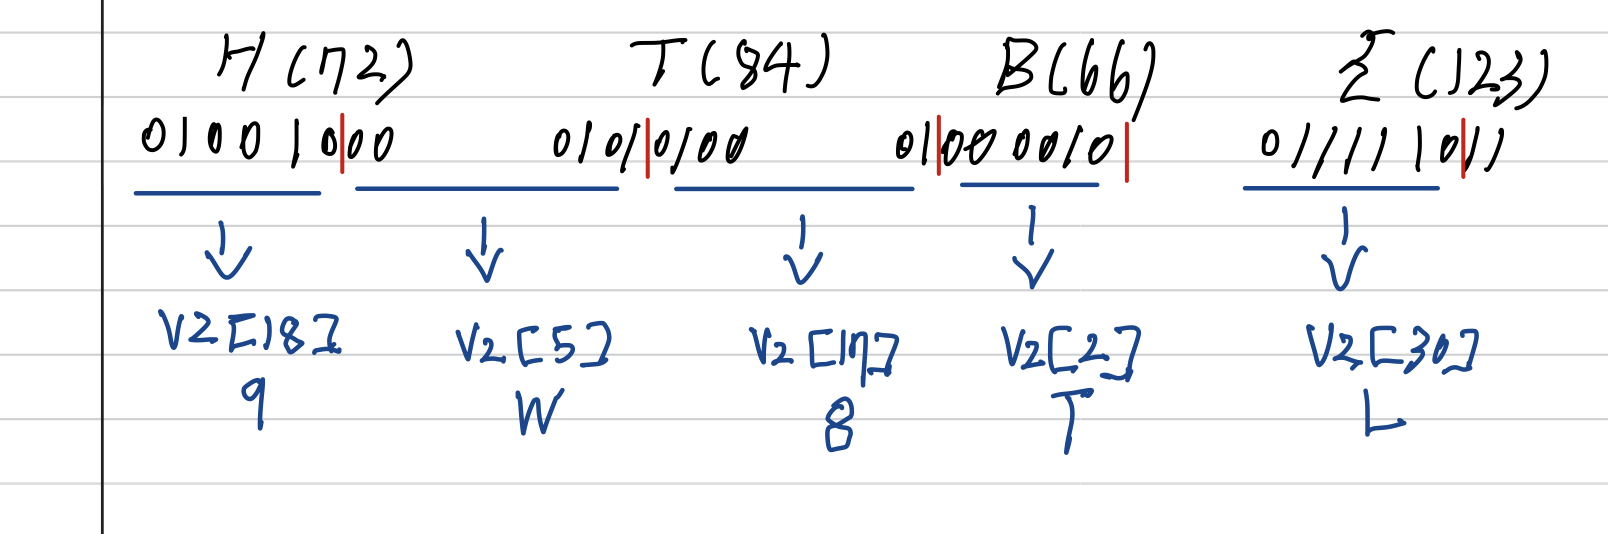 H (72) T (84) B (66) { (123)
01001000 01010100 01000010 011111011
V2[18] V2[5] V2[17] V2[2] V2[30]
9 W 8 T L